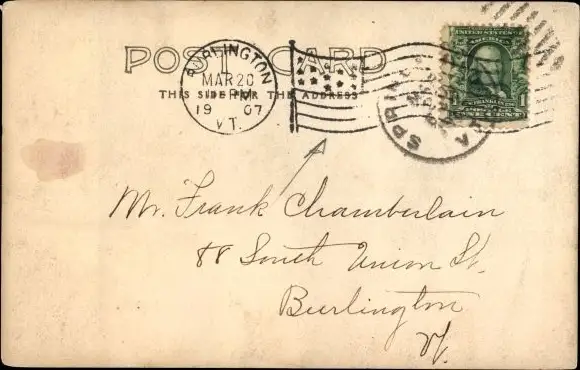 POST CARD
THIS SIDE FOR THE ADDRESS
BURLINGTON
MAR 20
PM
19 07
VT.
UNITED STATES
AMERICA
FRANKLIN
1 1
ONE CENT
SPRING
Mr. Frank Chamberlain
88 South Union St.
Burlington
Vt.